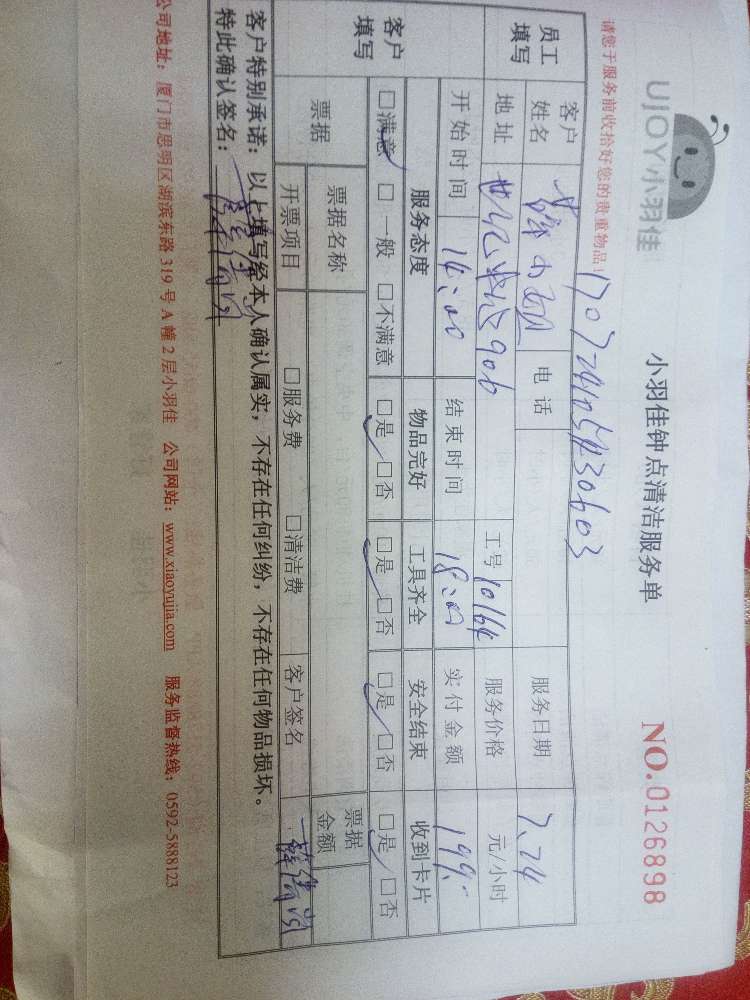 UJOY小羽佳
小羽佳钟点清洁服务单
NO.0126898
请您于服务前收拾好您的贵重物品！
170724105430603
员工填写
客户姓名 电话 服务日期 7.24
地址 906 工号 10164 服务价格 元/小时
开始时间 14:00 结束时间 18:00 实付金额 199.
客户填写
服务态度 物品完好 工具齐全 安全结束 收到卡片
□满意 □一般 □不满意 □是 □否 □是 □否 □是 □否 □是 □否
票据 票据名称 票据金额
开票项目 □服务费 □清洁费 客户签名
客户特别承诺：以上填写经本人确认属实，不存在任何纠纷，不存在任何物品损坏。
特此确认签名：
公司地址：厦门市思明区湖滨东路 319 号 A 幢 2 层小羽佳 公司网站：www.xiaoyujia.com 服务监督热线：0592-5888123